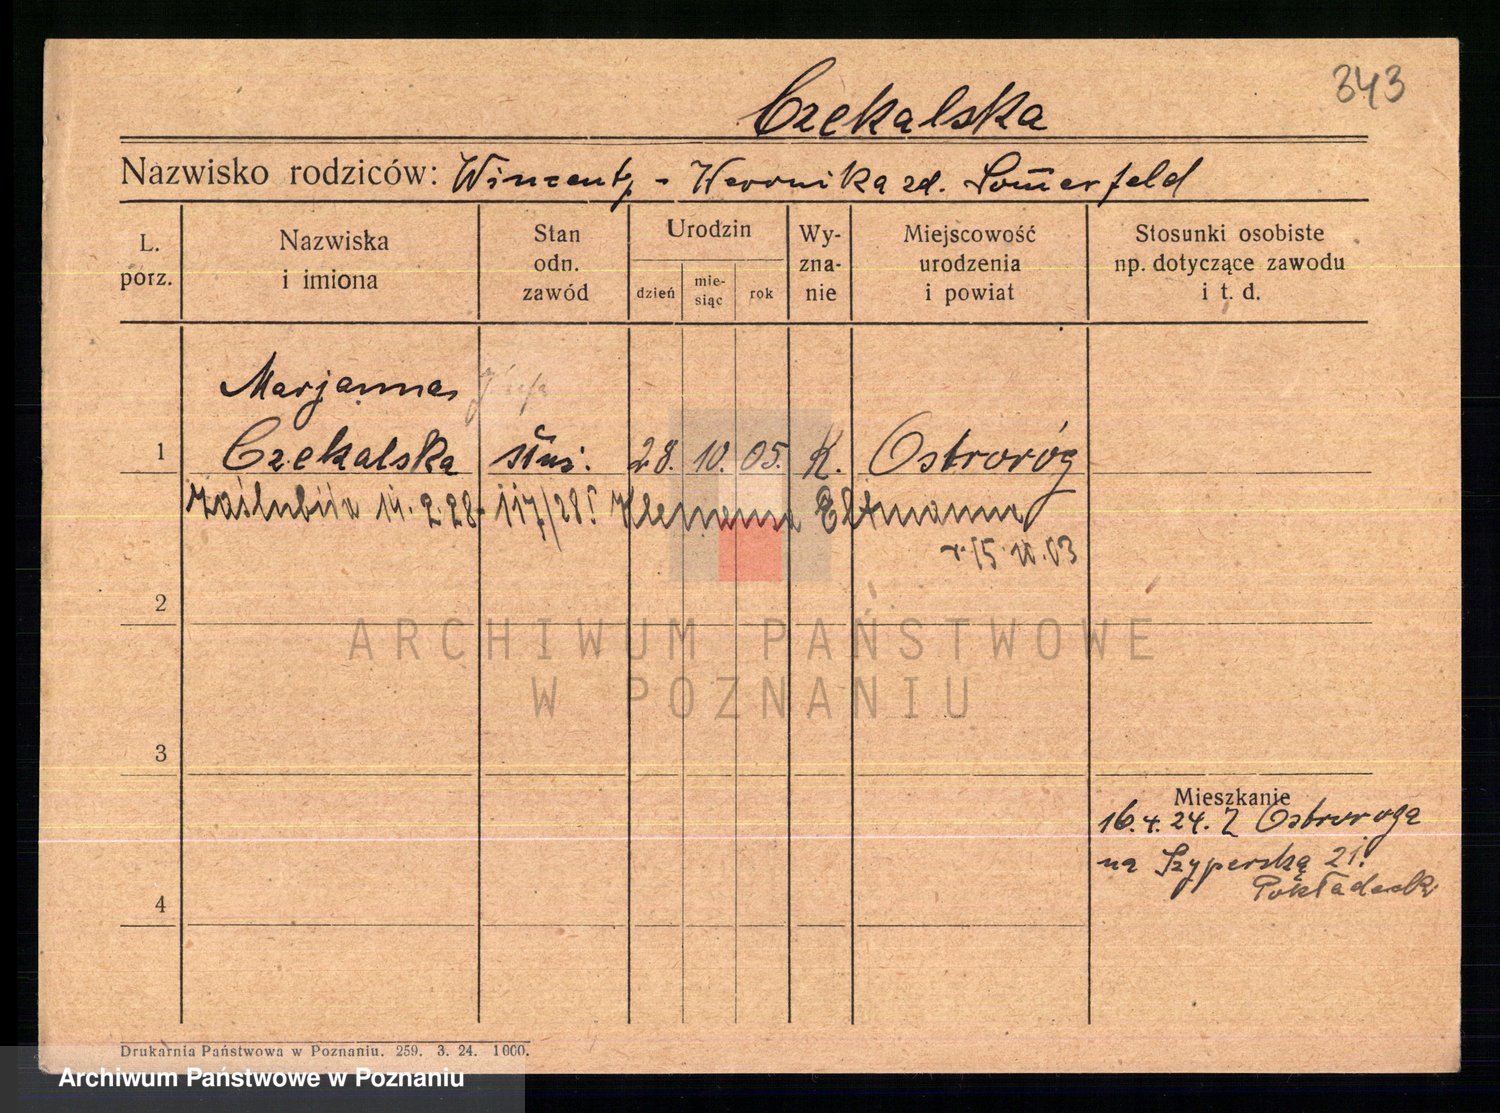 343
Czekalska
Nazwisko rodziców: Wincenty - Weronika zd. Som̄erfeld
L. porz.
Nazwiska i imiona
Stan odn. zawód
Urodzin
dzień
mie- siąc
rok
Wy- zna- nie
Miejscowość urodzenia i powiat
Stosunki osobiste np. dotyczące zawodu i t. d.
Marjanna Józefa
1 Czekalska służ. 28. 10. 05. K. Ostroróg
zaślubiła 14. 2. 28 - 117/28 Klemensa
r. 15. 11. 03
2
ARCHIWUM PAŃSTWOWE
W POZNANIU
3
Mieszkanie
16.4.24. Z Ostroroga
na Szyperską 21.
4
Drukarnia Państwowa w Poznaniu. 259. 3. 24. 1000.
Archiwum Państwowe w Poznaniu